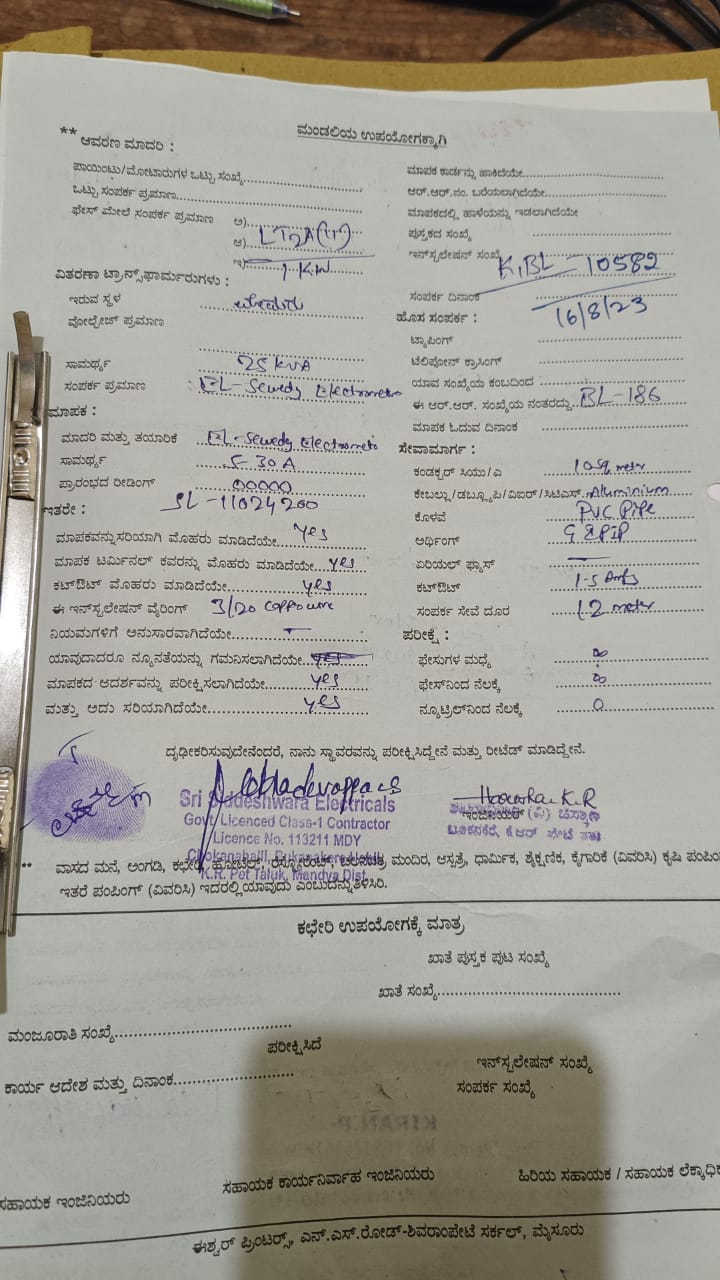 ಮಂಡಲಿಯ ಉಪಯೋಗಕ್ಕಾಗಿ
** ಆವರಣ ಮಾದರಿ :
ಪಾಯಿಂಟು/ಮೋಟಾರುಗಳ ಒಟ್ಟು ಸಂಖ್ಯೆ
ಒಟ್ಟು ಸಂಪರ್ಕ ಪ್ರಮಾಣ
ಫೇಸ್ ಮೇಲೆ ಸಂಪರ್ಕ ಪ್ರಮಾಣ ಅ)
ಆ) LT2A(ii)
ಇ) 1 K.W
ವಿತರಣಾ ಟ್ರಾನ್ಸ್‌ಫಾರ್ಮರುಗಳು :
ಇರುವ ಸ್ಥಳ
ವೋಲ್ಟೇಜ್ ಪ್ರಮಾಣ
ಸಾಮರ್ಥ್ಯ 25 KVA
ಸಂಪರ್ಕ ಪ್ರಮಾಣ : EL-Sewedy Electrometer
ಮಾಪಕ :
ಮಾದರಿ ಮತ್ತು ತಯಾರಿಕೆ EL-Sewedy Electrometer
ಸಾಮರ್ಥ್ಯ 5-30A
ಪ್ರಾರಂಭದ ರೀಡಿಂಗ್ 00000
ಇತರೇ : SL-11024200
ಮಾಪಕವನ್ನು ಸರಿಯಾಗಿ ಮೊಹರು ಮಾಡಿದೆಯೇ yes
ಮಾಪಕ ಟರ್ಮಿನಲ್ ಕವರನ್ನು ಮೊಹರು ಮಾಡಿದೆಯೇ yes
ಕಟ್‌ಔಟ್ ಮೊಹರು ಮಾಡಿದೆಯೇ yes
ಈ ಇನ್‌ಸ್ಟಲೇಷನ್ ವೈರಿಂಗ್ 3/20
ನಿಯಮಗಳಿಗೆ ಅನುಸಾರವಾಗಿದೆಯೇ
ಯಾವುದಾದರೂ ನ್ಯೂನತೆಯನ್ನು ಗಮನಿಸಲಾಗಿದೆಯೇ yes
ಮಾಪಕದ ಆದರ್ಶವನ್ನು ಪರೀಕ್ಷಿಸಲಾಗಿದೆಯೇ yes
ಮತ್ತು ಅದು ಸರಿಯಾಗಿದೆಯೇ yes
ಮಾಪಕ ಕಾರ್ಡನ್ನು ಹಾಕಿದೆಯೇ
ಆರ್.ಆರ್.ನಂ. ಬರೆಯಲಾಗಿದೆಯೇ
ಮಾಪಕದಲ್ಲಿ ಹಾಳೆಯನ್ನು ಇಡಲಾಗಿದೆಯೇ
ಪುಸ್ತಕದ ಸಂಖ್ಯೆ
ಇನ್‌ಸ್ಟಲೇಷನ್ ಸಂಖ್ಯೆ KIBL-10582
ಸಂಪರ್ಕ ದಿನಾಂಕ 16/8/23
ಹೊಸ ಸಂಪರ್ಕ :
ಟ್ಯಾಪಿಂಗ್
ಟೆಲಿಪೋನ್ ಕ್ರಾಸಿಂಗ್
ಯಾವ ಸಂಖ್ಯೆಯ ಕಂಬದಿಂದ
ಈ ಆರ್.ಆರ್. ಸಂಖ್ಯೆಯ ನಂತರದ್ದು BL-186
ಮಾಪಕ ಓದುವ ದಿನಾಂಕ
ಸೇವಾಮಾರ್ಗ :
ಕಂಡಕ್ಟರ್ ಸಿಯು/ಎ 10 sq meter
ಕೇಬಲ್ಲು/ಡಬ್ಲ್ಯೂಪಿ/ವಿಐರ್/ಸಿಟಿಎಸ್ Aluminium
ಕೊಳವೆ PVC Pipe
ಅರ್ಥಿಂಗ್
ಏರಿಯಲ್ ಫ್ಯೂಸ್
ಕಟ್‌ಔಟ್
ಸಂಪರ್ಕ ಸೇವೆ ದೂರ 12 meter
ಪರೀಕ್ಷೆ :
ಫೇಸುಗಳ ಮಧ್ಯೆ ∞
ಫೇಸ್‌ನಿಂದ ನೆಲಕ್ಕೆ ∞
ನ್ಯೂಟ್ರಲ್‌ನಿಂದ ನೆಲಕ್ಕೆ 0
ದೃಢೀಕರಿಸುವುದೇನೆಂದರೆ, ನಾನು ಸ್ಥಾವರವನ್ನು ಪರೀಕ್ಷಿಸಿದ್ದೇನೆ ಮತ್ತು ರೀಟೆಡ್ ಮಾಡಿದ್ದೇನೆ.
Sri Siddeshwara Electricals
Govt. Licenced Class-1 Contractor
Licence No. 113211 MDY
K.R. Pet Taluk, Mandya Dist.
ಇಂಜಿನಿಯರ್
** ವಾಸದ ಮನೆ, ಅಂಗಡಿ, ಕಛೇರಿ, ಹೋಟೆಲ್, ರೆಸ್ಟೋರೆಂಟ್, ಚಲನಚಿತ್ರ ಮಂದಿರ, ಆಸ್ಪತ್ರೆ, ಧಾರ್ಮಿಕ, ಶೈಕ್ಷಣಿಕ, ಕೈಗಾರಿಕೆ (ವಿವರಿಸಿ) ಕೃಷಿ ಪಂಪಿಂ
ಇತರೆ ಪಂಪಿಂಗ್ (ವಿವರಿಸಿ) ಇದರಲ್ಲಿ ಯಾವುದು ಎಂಬುದನ್ನು ತಿಳಿಸಿರಿ.
ಕಛೇರಿ ಉಪಯೋಗಕ್ಕೆ ಮಾತ್ರ
ಖಾತೆ ಪುಸ್ತಕ ಪುಟ ಸಂಖ್ಯೆ
ಖಾತೆ ಸಂಖ್ಯೆ
ಮಂಜೂರಾತಿ ಸಂಖ್ಯೆ
ಪರೀಕ್ಷಿಸಿದೆ
ಇನ್‌ಸ್ಟಲೇಷನ್ ಸಂಖ್ಯೆ
ಕಾರ್ಯ ಆದೇಶ ಮತ್ತು ದಿನಾಂಕ
ಸಂಪರ್ಕ ಸಂಖ್ಯೆ
ಸಹಾಯಕ ಇಂಜಿನಿಯರು
ಸಹಾಯಕ ಕಾರ್ಯನಿರ್ವಾಹ ಇಂಜಿನಿಯರು
ಹಿರಿಯ ಸಹಾಯಕ / ಸಹಾಯಕ ಲೆಕ್ಕಾಧಿಕ
ಈಶ್ವರ್ ಪ್ರಿಂಟರ್ಸ್, ಎನ್.ಎಸ್.ರೋಡ್-ಶಿವರಾಂಪೇಟೆ ಸರ್ಕಲ್, ಮೈಸೂರು